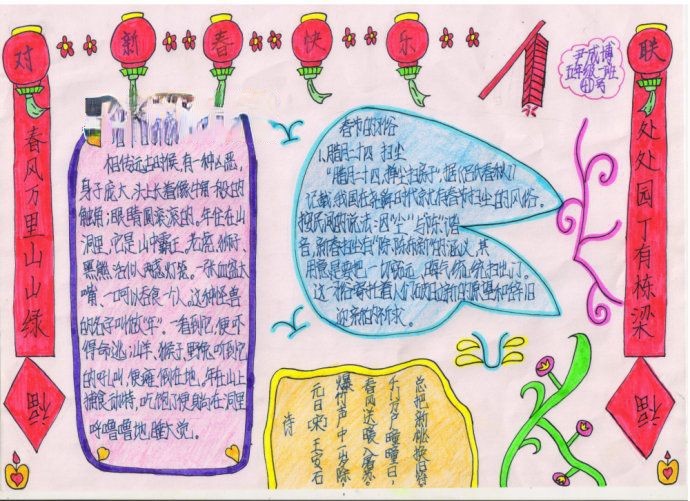 对 新 春 快 乐 联
尹成博
五年级一班
40号
春风万里山山绿
福
相传远古时候,有一种凶恶,
身子庞大,头上长着像
触角;眼睛圆滚滚的。年住在山
洞里,它是山中霸王。
黑熊
嘴,一口可以吞食一个人,这种怪兽
的名字叫做“年”。一看到它便吓
得命逃;山羊、猴子、野兔听到它
的吼叫,便瘫倒在地。年在山上
捕食动物,吃饱了便躺在洞里
呼噜噜地睡大觉。
春节的习俗
1、腊月二十四 扫尘
“腊月二十四,掸尘扫房子”据《吕氏春秋》
记载,我国在尧舜时代就有春节扫尘的风俗。
按民间的说法:因“尘”与“陈”谐
音,新春扫尘有“除陈布新”的涵义,其
用意是要把一切穷运、晦气统统扫出门。
这一习俗寄托着人们破旧立新的愿望和辞旧
迎新的祈求。
诗
元日(宋)王安石
爆竹声中一岁除,
春风送暖入屠苏。
千门万户曈曈日,
总把新桃换旧符。
处处园丁有栋梁
福